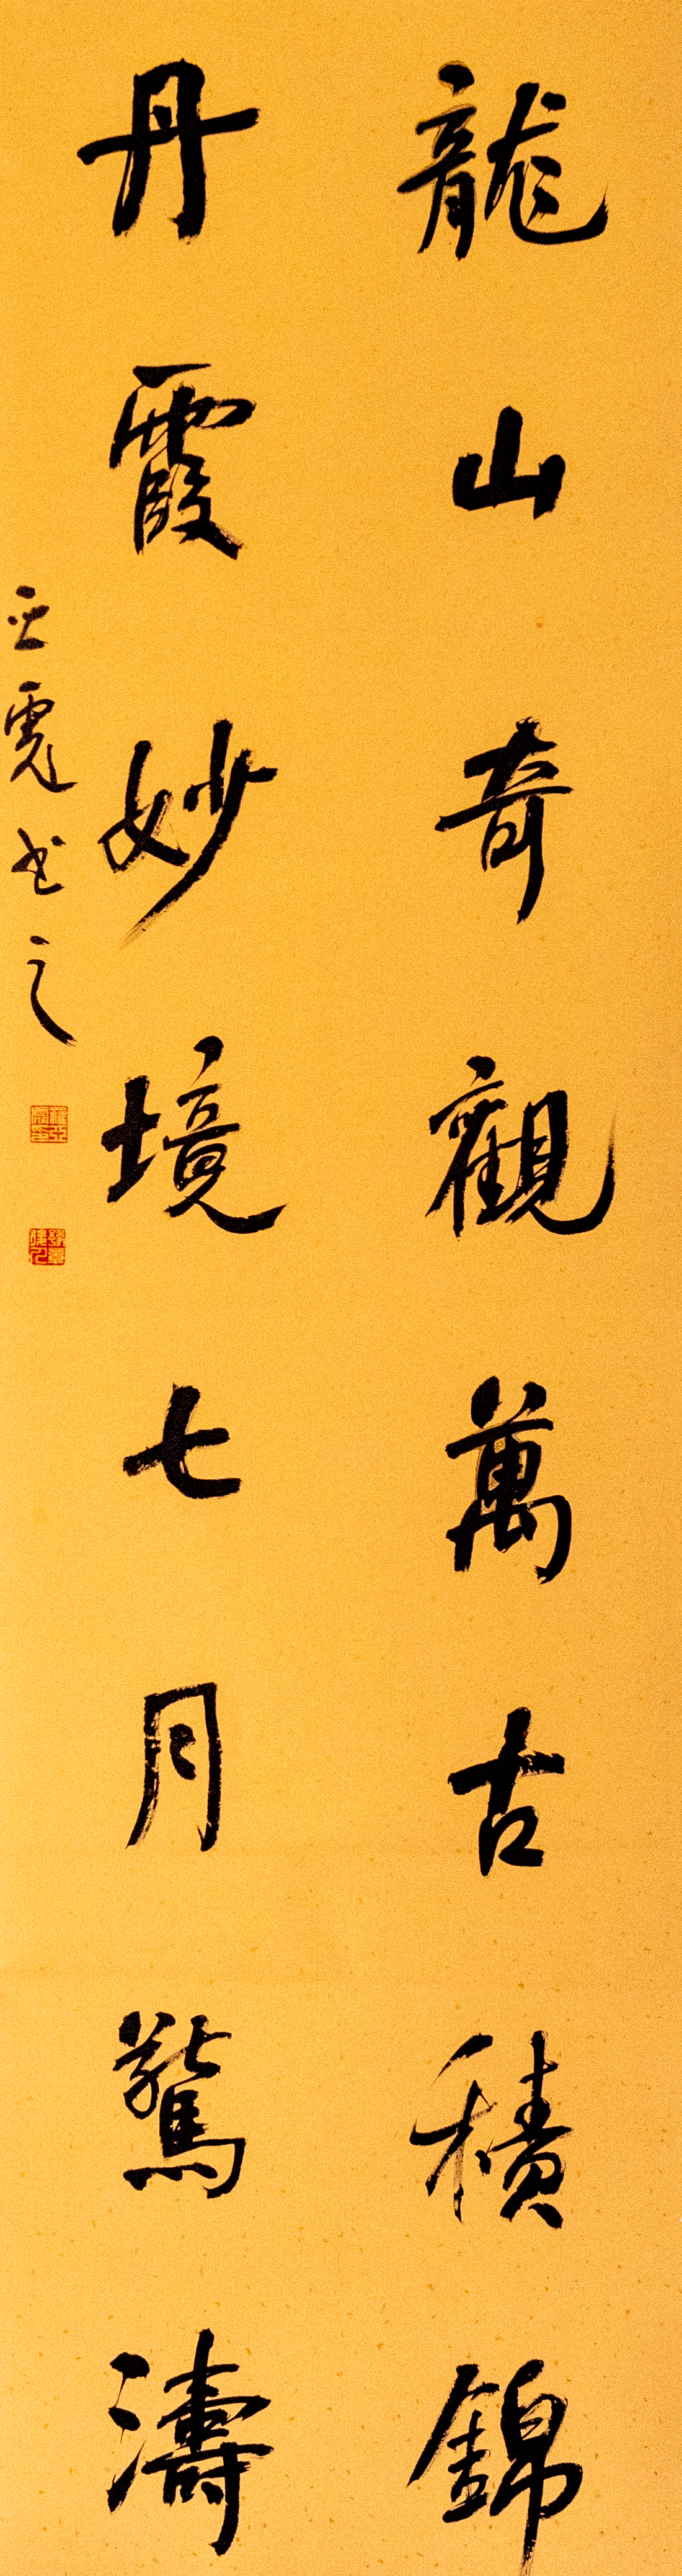 龍山奇觀萬古積錦
丹霞妙境七月驚濤
亞霓书之